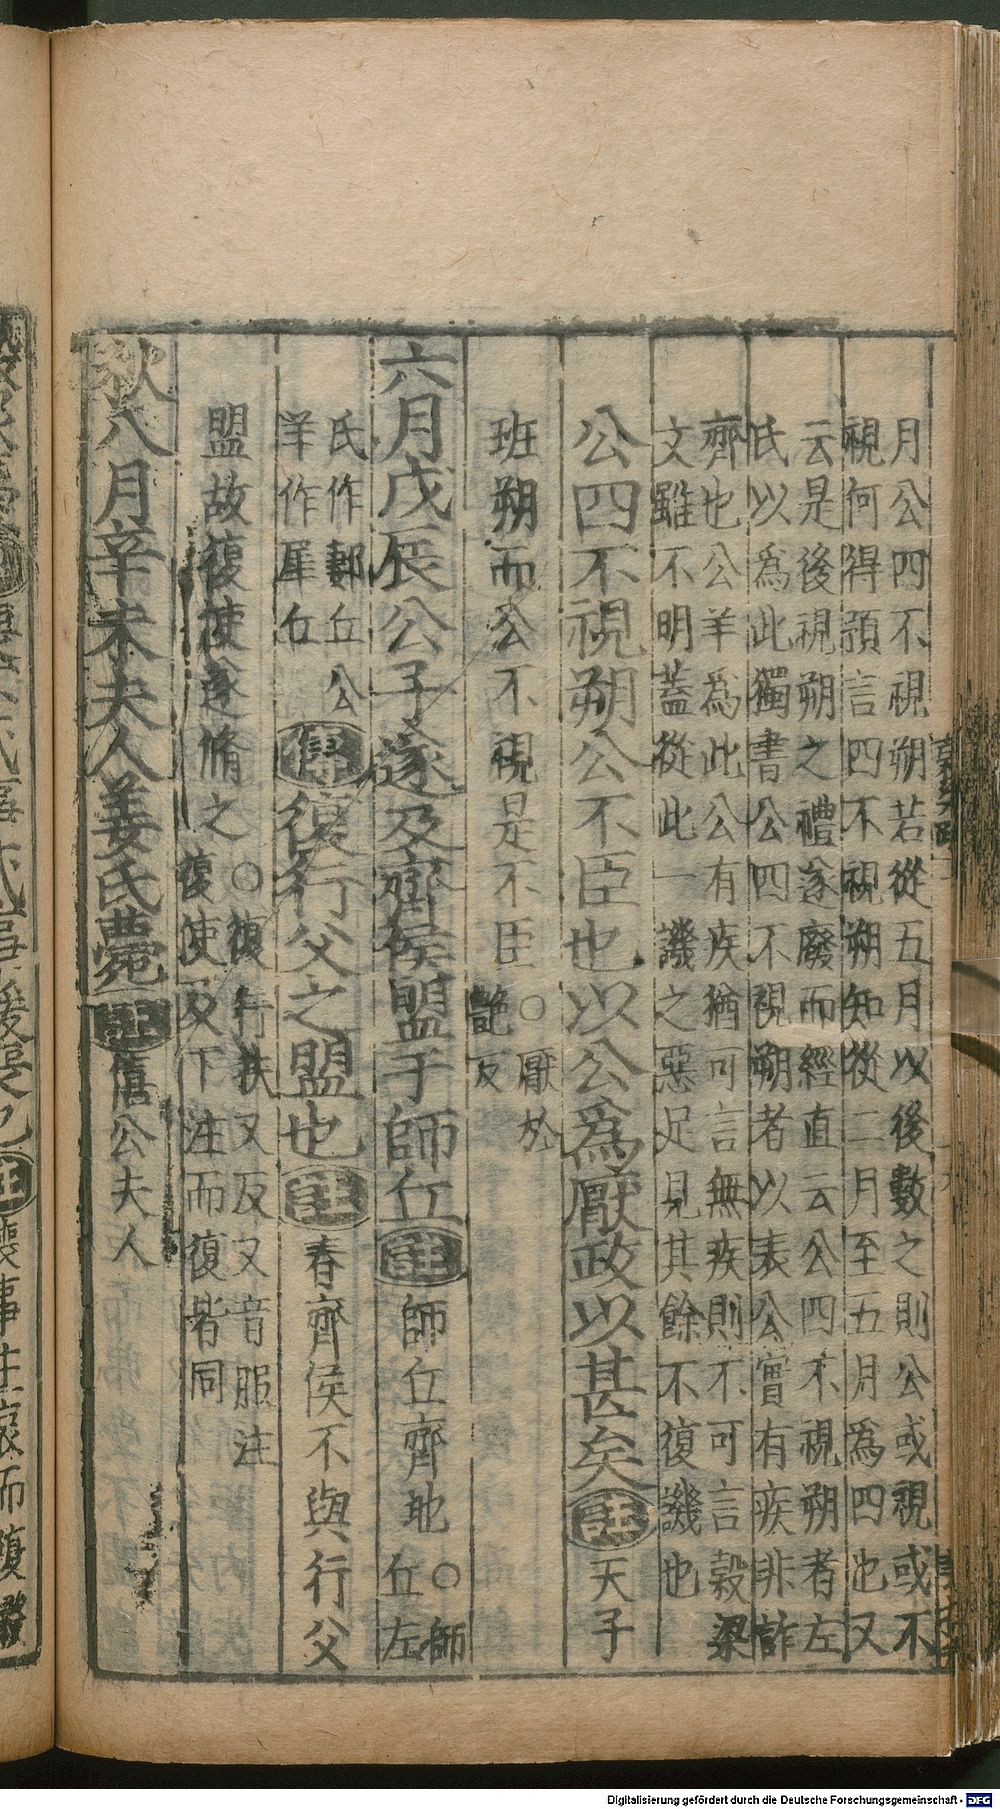 月公四不視朔若從五月以後數之則公或視或不
視何得預言四不視朔知從二月至五月為四也又
云是後視朔之禮遂廢而經直云公四不視朔者左
氏以為此獨書公四不視朔者以表公實有疾非詐
齊也公羊為此公有疾猶可言無疾則不可言榖梁
文雖不明蓋從此一譏之惡足見其餘不復譏也
公四不視朔公不臣也以公為厭政以甚矣註天子
班朔而公不視是不臣○厭於
艶反
六月戊辰公子遂及齊侯盟于師丘註師丘齊地○師
丘左
氏作郪丘公
羊作犀丘傳復行父之盟也註春齊侯不與行父
盟故復使遂脩之○復行扶又反又音服注
復使及下注而復者同
秋八月辛未夫人姜氏薨註僖公夫人
Digitalisierung gefördert durch die Deutsche Forschungsgemeinschaft - DFG